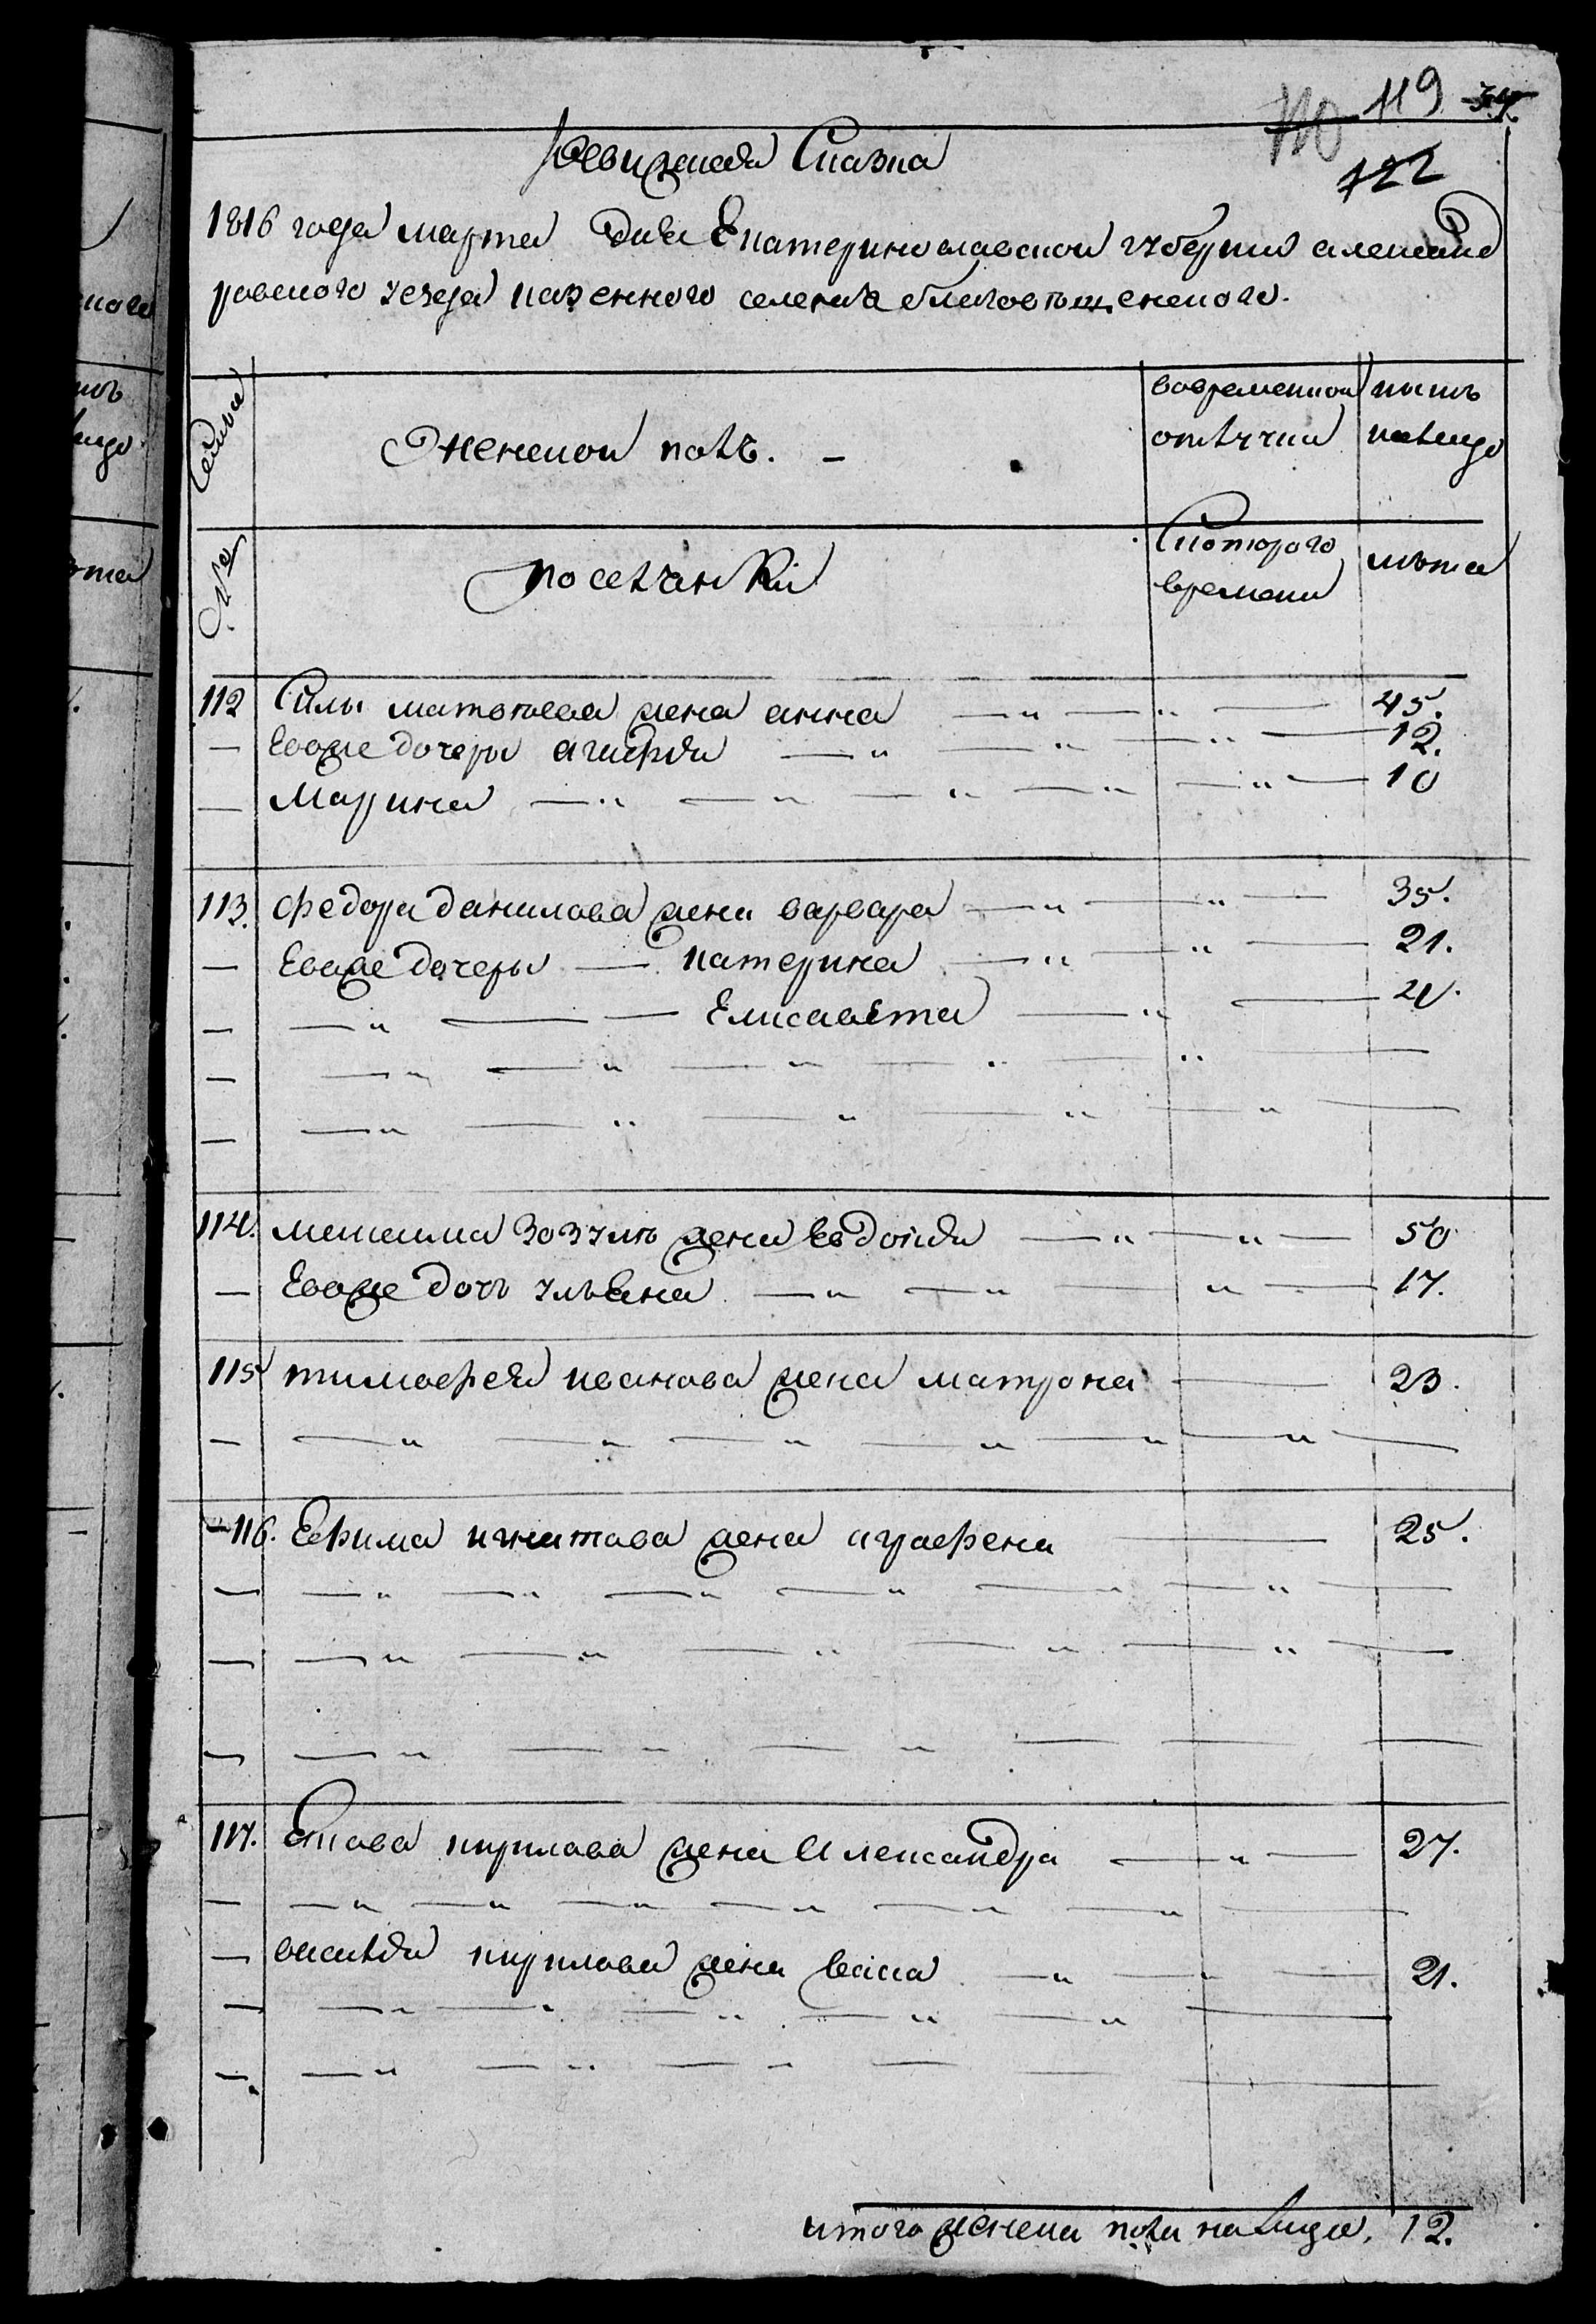 119
122
Ревизская Сказка
1816 года марта дня Екатеринославской губернии александ
ровского уезда казенного селения благовѣщенского.
Семьи
Женской полъ. –
вовременной
отлучки
нынѣ
налицо
№
поселянки
Скоторого
времени
лѣта
112 Силы матвеева жена анна 45.
— Евоже дочеры агафия 12.
— Марина 10
113. Федора данилова жена варвара 35.
— Евоже дочеры — катерина 21.
— Елисавета
114. максима Зозулѣ жена Евдокия 50
— Евоже дочъ ульяна 17.
115 тимофея иванова жена матрона 23.
116. Ефима игнатова жена аграфена 25.
117. кирилова жена Александра 27.
— василия кирилова жена васса 21.
итого женска пола налицо. 12.